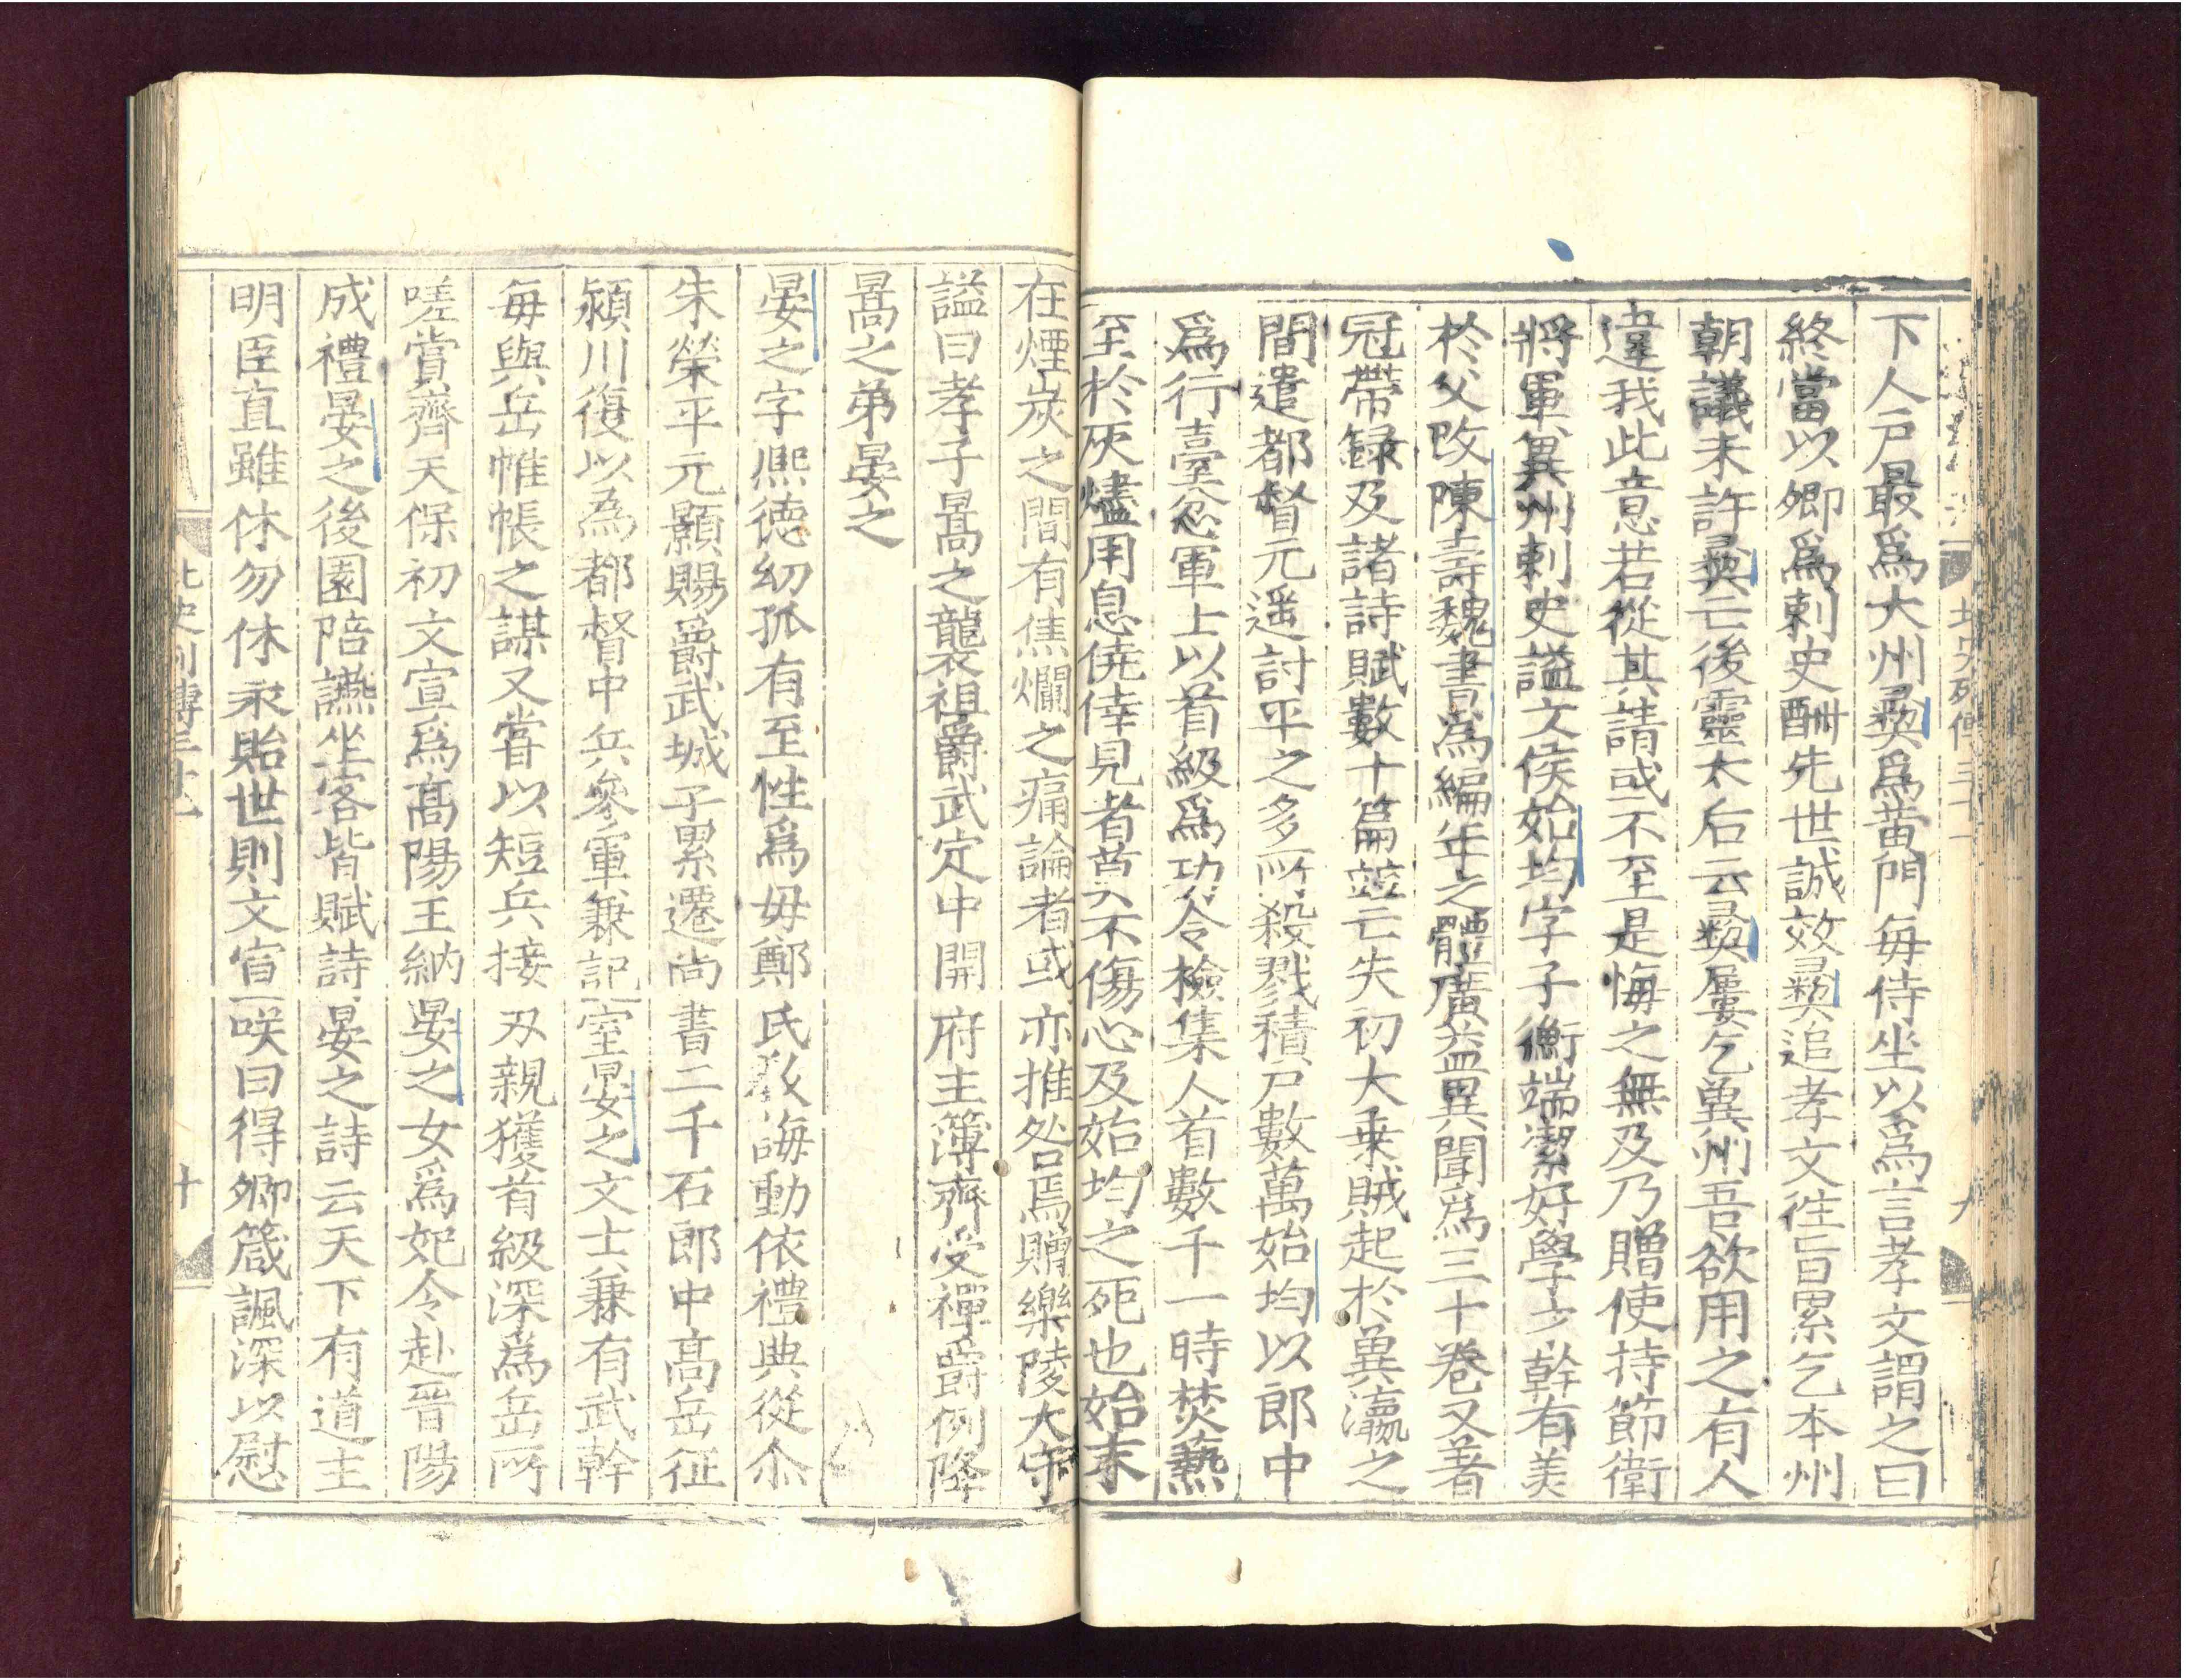 下人戸最爲大州彝爲黄門每侍坐以爲言孝文謂之曰
終當以卿爲刺史酬先世誠效彝追孝文徃旨累乞本州
朝議未許彝亡後靈太后云彝屢乞兾州吾欲用之有人
違我此意若從其請或不至是悔之無及乃贈使持節衛
將軍兾州刺史謚文侯始均字子衡端潔好學才幹有美
於父改陳壽魏書爲編年之體廣益異聞爲三十卷又著
冠帶録及諸詩賦數十篇竝亡失初大乗賊起於兾瀛之
間遣都督元遥討平之多所殺戮積尸數萬始均以郎中
爲行臺忿軍士以首級爲功令檢集人首數千一時焚爇
至於灰燼用息僥倖見者莫不傷心及始均之死也始末
在煙炭之間有焦爛之痛論者或亦推咎焉贈樂陵太守
謚曰孝子暠之襲祖爵武定中開府主簿齊受禪爵例降
暠之弟晏之
晏之字熈徳幼孤有至性爲母鄭氏敎誨動依禮典從尒
朱榮平元顥賜爵武城子累遷尚書二千石郎中高岳征
潁川復以為都督中兵參軍兼記室晏之文士兼有武幹
每與岳帷帳之謀又嘗以短兵接刃親獲首級深爲岳所
嗟賞齊天保初文宣爲髙陽王納晏之女爲妃令赴晉陽
成禮晏之後園陪讌坐客皆賦詩晏之詩云天下有道主
明臣直雖休勿休永貽世則文宣咲曰得卿箴諷深以慰
北史列傳三十一
十